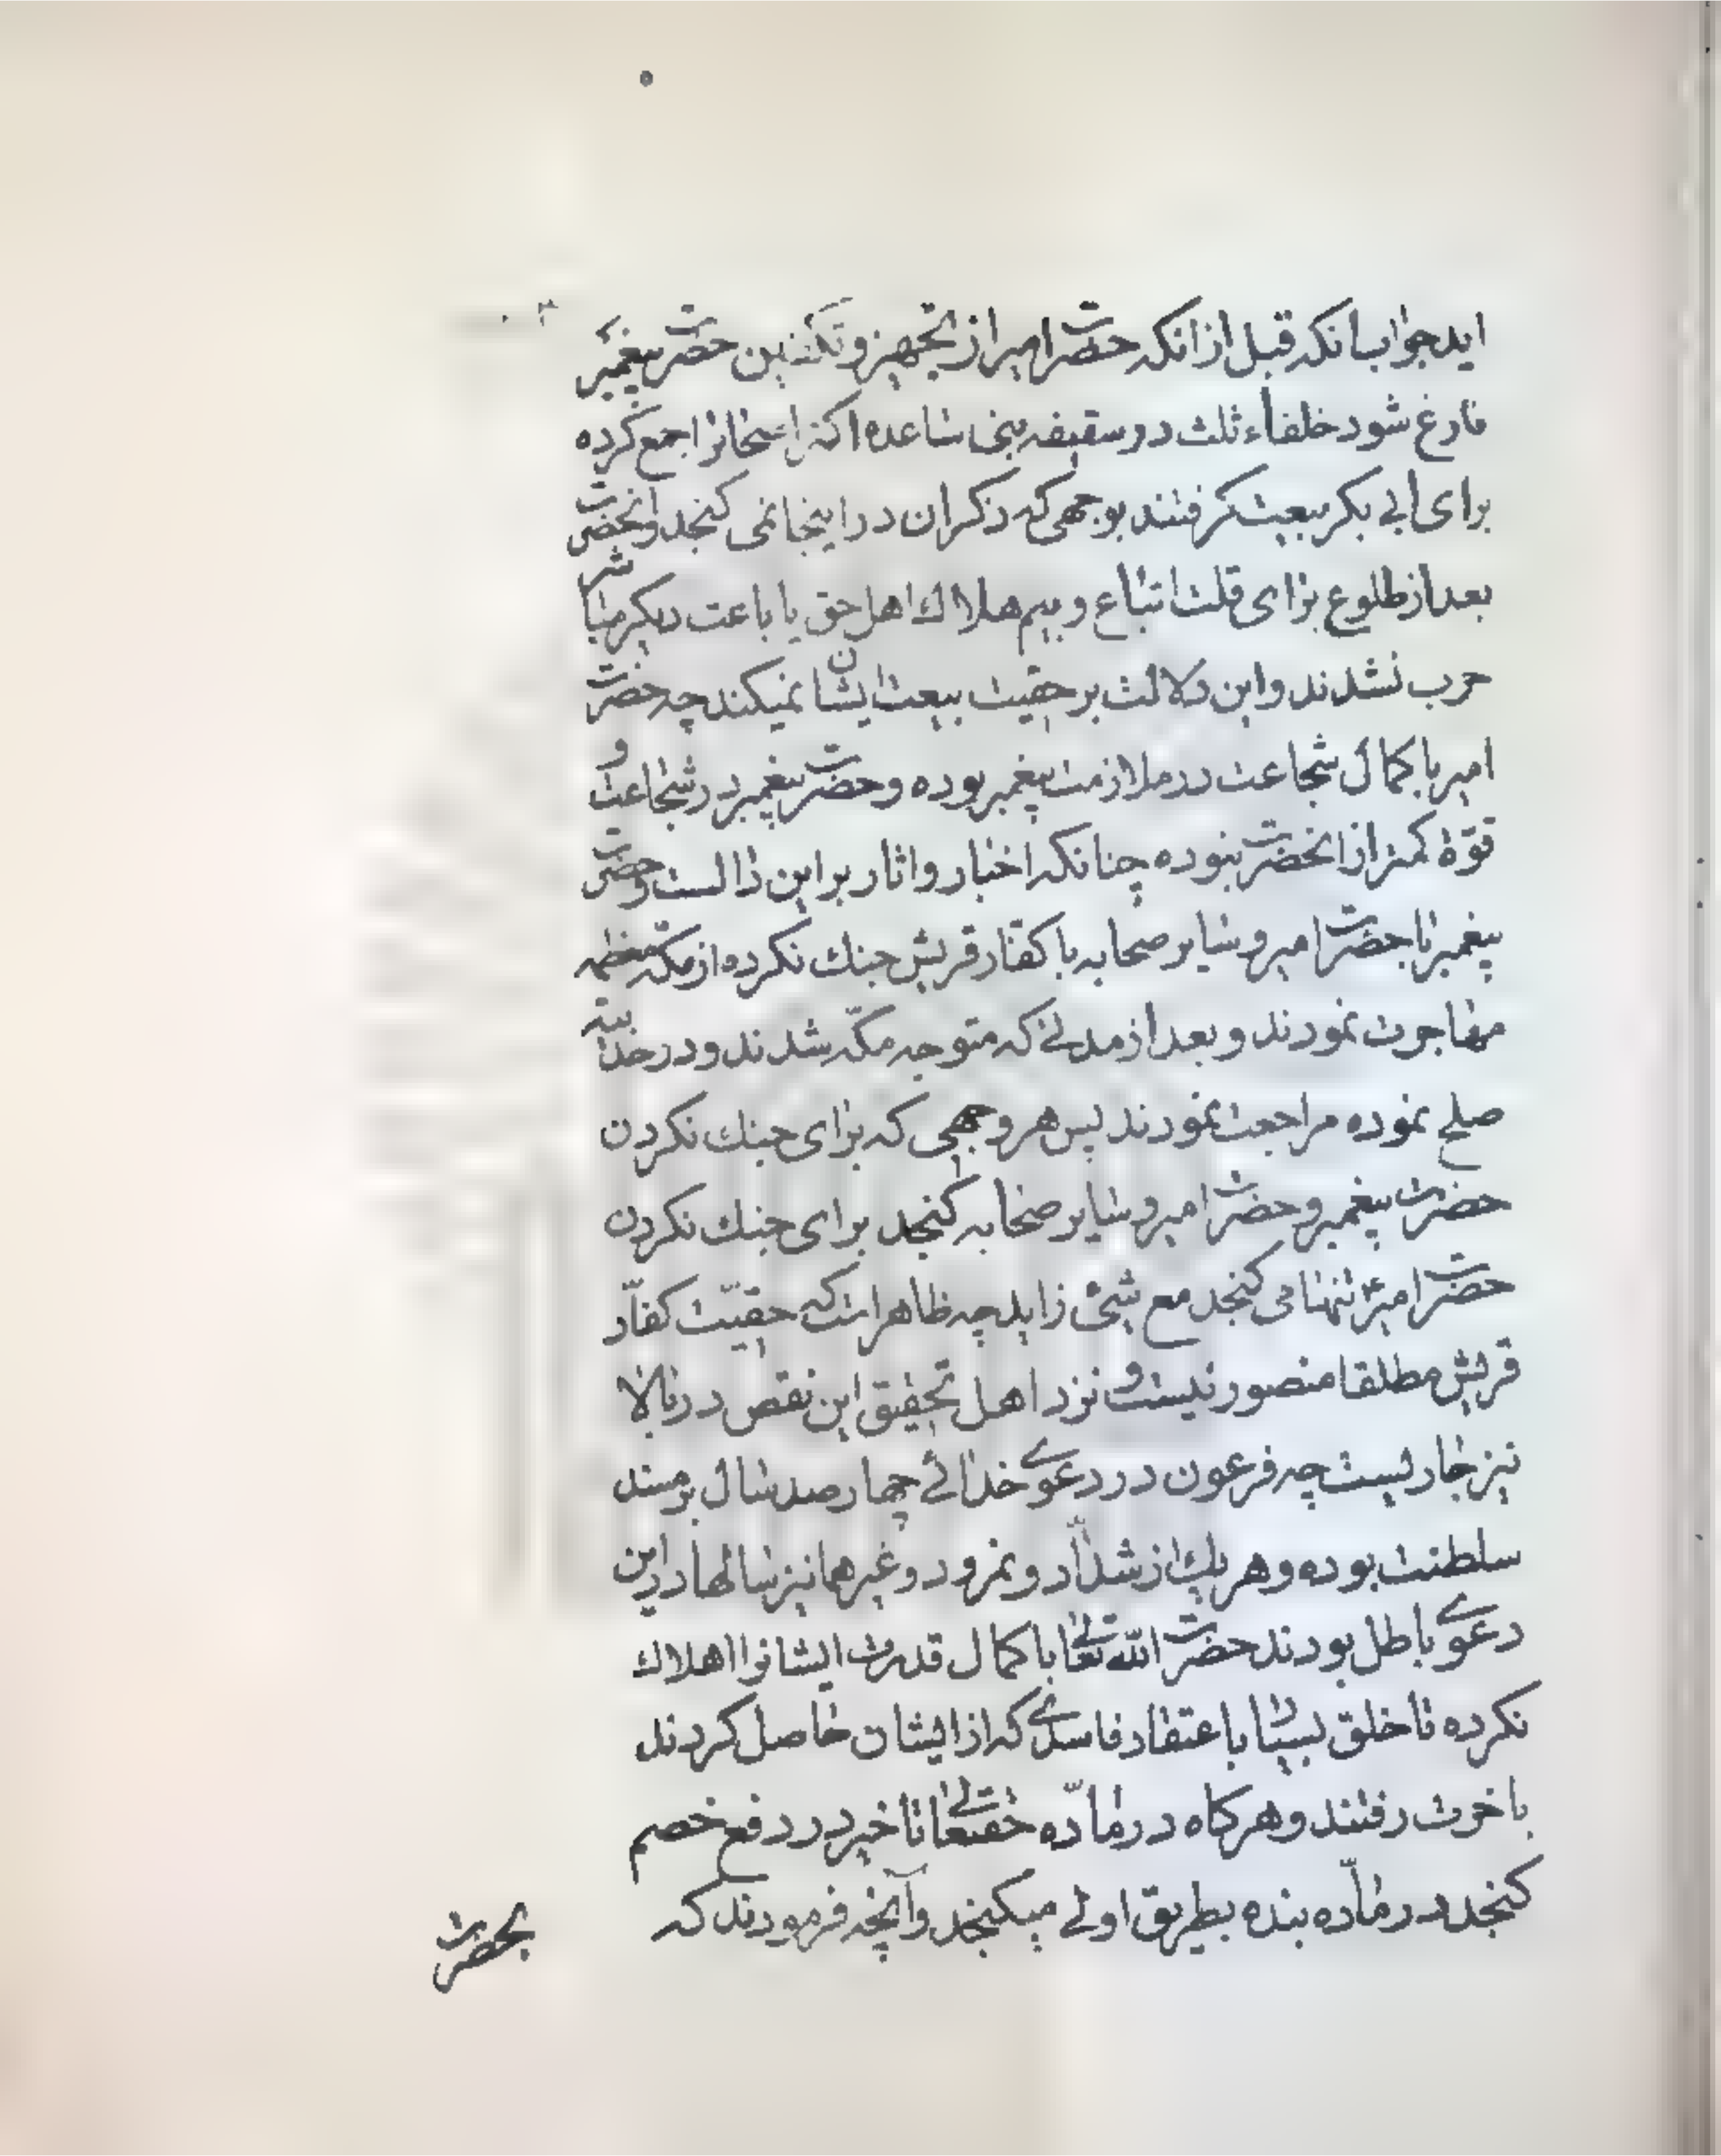 اید جواب انکه قبل ازانکه حضرت امیر از تجهیز و تکفین حضرت پیغمبر
فارغ شود خلفاء ثلث در سقیفه بنی ساعده اکثر اصحابرا جمع کرده
برای ابی بکر بیعت کرفتند بوجهی که ذکر ان در اینجا نمی کنجد وانحضرت
بعد از طلوع برای قلت اتباع و بیم هلاك اهل حق یا باعث دیکر مباشر
حرب نشدند واین دلالت بر حقیت بیعت ایشان نمیکند چه حضرت
امیر با کمال شجاعت در ملازمت پیغمبر بوده و حضرت پیغمبر در شجاعت و
قوّة کمتر از انحضرت نبوده چنانکه اخبار واثار بر این دالست و حضرت
پیغمبر با حضرت امیر و سایر صحابه با کفار قریش جنك نکرده از مکه معظمه
مهاجرت نمودند و بعد از مدتی که متوجه مکّه شدند و در حدیبیه
صلح نموده مراجعت نمودند پس هر وجهی که برای جنك نکردن
حضرت پیغمبر و حضرت امیر و سایر صحابه کنجد برای جنك نکردن
حضرت امیرع تنها می کنجد مع شیئ زاید چه ظاهر است که حقیّت کفاّر
قریش مطلقا متصور نیست و نزد اهل تحقیق این نقص در بالا
نیز جاریست چه فرعون در دعوے خدائی چهار صد سال بر مسند
سلطنت بوده و هر یك از شدّاد و نمرود و غیرهما نیز سالها در این
دعوے باطل بودند حضرت الله تعالی با کمال قدرت ایشانرا اهلاك
نکرده تا خلق بسیار با اعتقاد فاسدے که از ایشان حاصل کردند
باخرت رفتند و هرکاه در مادّه حقتعالی تاخیر در دفع خصم
کنجد در مادّه بنده بطریق اولی میکنجد وآنچه فرمودند که
بحضرت